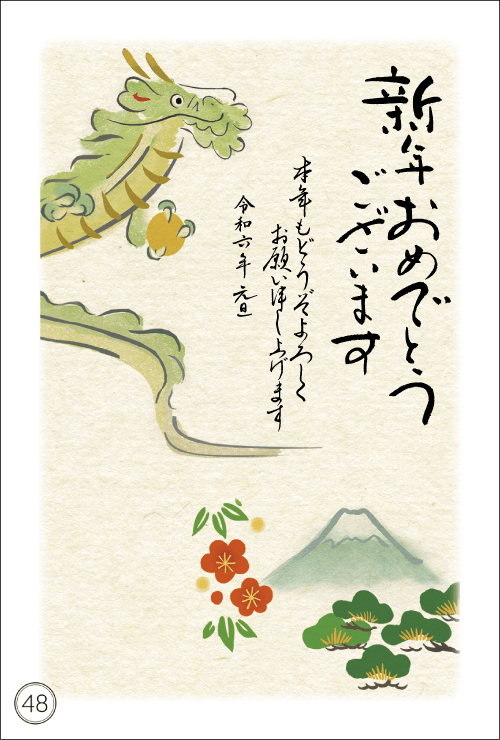 新年おめでとう
ございます
本年もどうぞよろしく
お願い申し上げます
令和六年 元旦
48